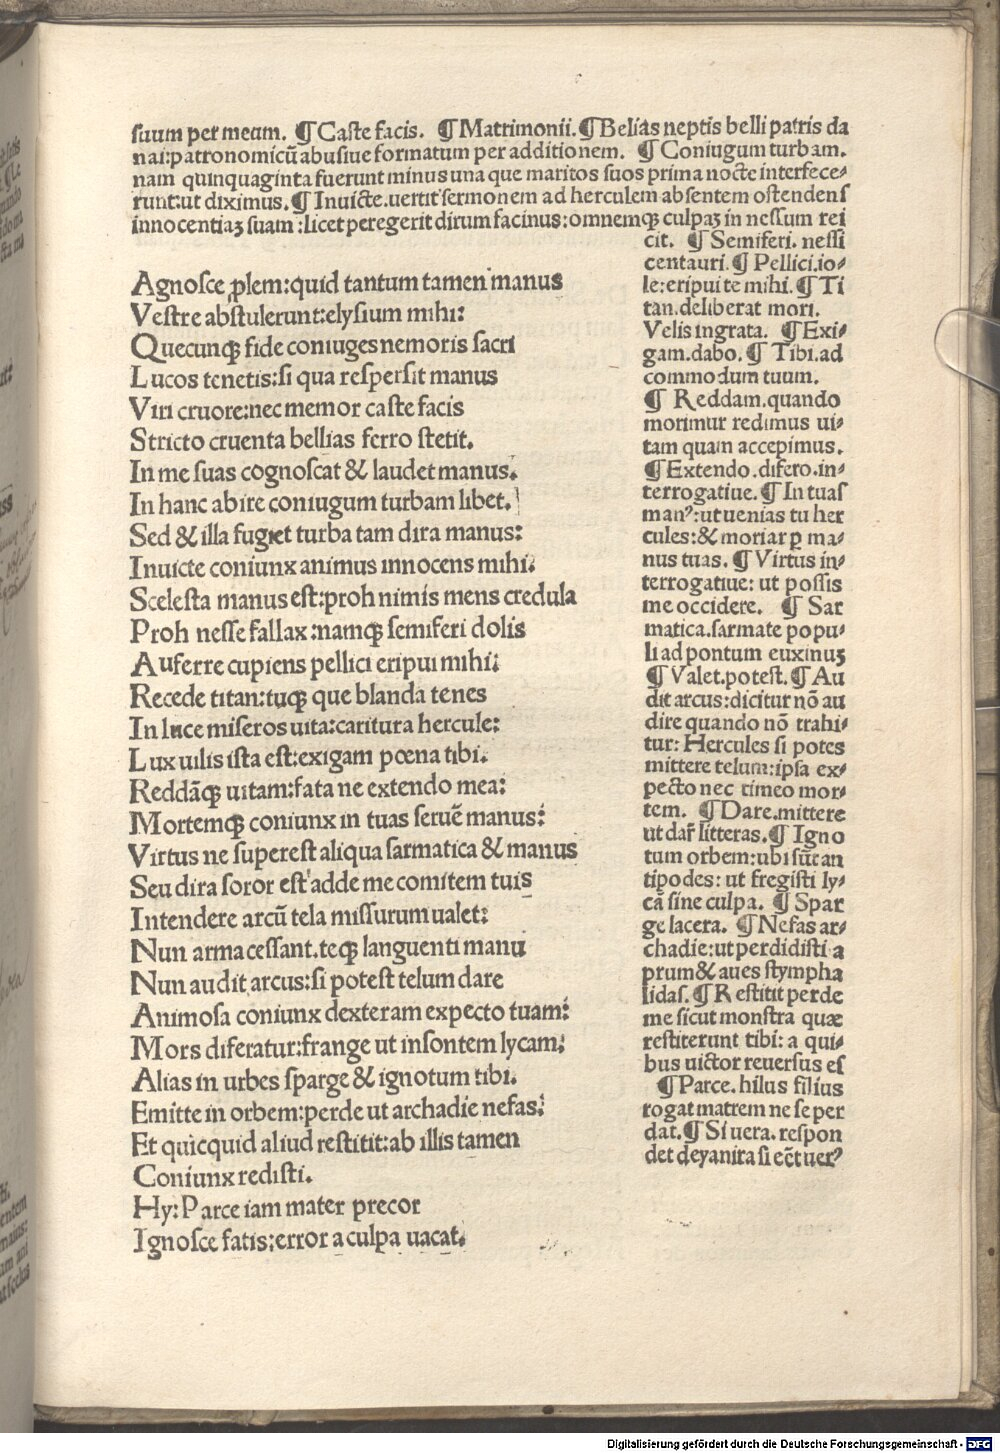 ſuum per meum. ¶ Caſte facis. ¶ Matrimonii. ¶ Belias neptis belli patris da
nai:patronomicū abusiue formatum per additionem. ¶ Coniugum turbam.
nam quinquaginta fuerunt minus una que maritos suos prima nocte interfece-
runt:ut diximus. ¶ Inuicte.uertit ſermonem ad herculem absentem oſtendens
innocentiaꝫ ſuam:licet peregerit dirum facinus:omnemqꝫ culpaꝫ in nessum rei
cit. ¶ Semiferi. nessi
centauri. ¶ Pellici.io-
le:eripui te mihi. ¶ Ti
tan.deliberat mori.
Velis ingrata. ¶ Exi-
gam.dabo. ¶ Tibi.ad
commodum tuum.
¶ Reddam.quando
morimur redimus ui-
tam quam accepimus.
¶ Extendo.difero.in-
terrogatiue. ¶ In tuas
manꝰ:ut uenias tu her
cules:& moriar ꝑ ma-
nus tuas. ¶ Virtus in-
terrogatiue: ut possis
me occidere. ¶ Sar
matica.sarmate popu-
li ad pontum euxinuꝫ
¶ Valet.potest. ¶ Au
dit arcus:dicitur nō au
dire quando nō trahi-
tur: Hercules si potes
mittere telum:ipsa ex-
pecto nec timeo mor-
tem. ¶ Dare.mittere
ut dar̄ litteras. ¶ Igno
tum orbem:ubi sūt an
tipodes: ut fregisti ly-
cā sine culpa. ¶ Spar
ge lacera. ¶ Nefas ar-
chadie:ut perdidisti a
prum & aues stympha
lidas. ¶ Restitit perde
me sicut monstra quæ
restiterunt tibi: a qui-
bus uictor reuersus es
¶ Parce. hilus filius
rogat matrem ne se per
dat. ¶ Si uera. respon
det deyanira si eēt uerꝰ
Agnoſce ꝓlem:quid tantum tamen manus
Vestre abstulerunt:elysium mihi:
Quecunqꝫ fide coniuges nemoris sacri
Lucos tenetis:si qua respersit manus
Viri cruore:nec memor caste facis
Stricto cruenta bellias ferro stetit.
In me suas cognoscat & laudet manus.
In hanc abire coniugum turbam libet.
Sed & illa fugiet turba tam dira manus:
Inuicte coniunx animus innocens mihi.
Scelesta manus est:proh nimis mens credula
Proh nesse fallax:namqꝫ semiferi dolis
Auferre cupiens pellici eripui mihi:
Recede titan:tuqꝫ que blanda tenes
In luce miseros uita:caritura hercule:
Lux uilis ista est:exigam pœna tibi.
Reddāqꝫ uitam:fata ne extendo mea:
Mortemqꝫ coniunx in tuas seruē manus:
Virtus ne superest aliqua sarmatica & manus
Seu dira soror est adde me comitem tuis
Intendere arcū tela missurum ualet:
Nun arma cessant.teqꝫ languenti manu
Nun audit arcus:si potest telum dare
Animosa coniunx dexteram expecto tuam:
Mors diferatur:frange ut insontem lycam:
Alias in urbes sparge & ignotum tibi.
Emitte in orbem:perde ut archadie nefas:
Et quicquid aliud restitit:ab illis tamen
Coniunx redisti.
Hy:Parce iam mater precor
Ignosce fatis:error a culpa uacat.
Digitalisierung gefördert durch die Deutsche Forschungsgemeinschaft - DFG